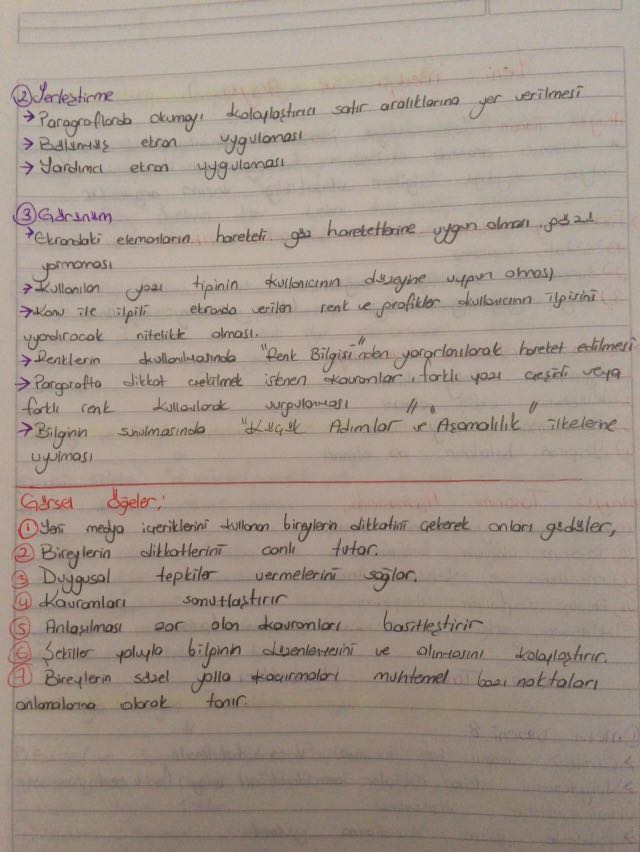 ② Yerleştirme
→ Paragraflarda okumayı kolaylaştırıcı satır aralıklarına yer verilmesi
→ Bölünmüş ekran uygulaması
→ Yardımcı ekran uygulaması
③ Görünüm
→ Ekrandaki elemanların hareketi göz hareketlerine uygun olması, gözü
yormaması
→ Kullanılan yazı tipinin kullanıcının düzeyine uygun olması
→ Konu ile ilgili ekranda verilen renk ve grafikler kullanıcının ilgisini
uyandıracak nitelikte olması.
→ Renklerin kullanılmasında "Renk Bilgisi"nden yararlanılarak hareket edilmesi
→ Paragrafta dikkat çekilmek istenen kavramlar, farklı yazı çeşidi veya
farklı renk kullanılarak vurgulanması
→ Bilginin sunulmasında "Küçük Adımlar" ve "Aşamalılık" ilkelerine
uyulması
Görsel Öğeler;
① Yeni medya içeriklerini kullanan bireylerin dikkatini çekerek onları güdüler,
② Bireylerin dikkatlerini canlı tutar.
③ Duygusal tepkiler vermelerini sağlar.
④ Kavramları somutlaştırır
⑤ Anlaşılması zor olan kavramları basitleştirir
⑥ Şekiller yoluyla bilginin düzenlenmesini ve alınmasını kolaylaştırır.
⑦ Bireylerin sözel yolla kaçırmaları muhtemel bazı noktaları
anlamalarına olarak tanır.